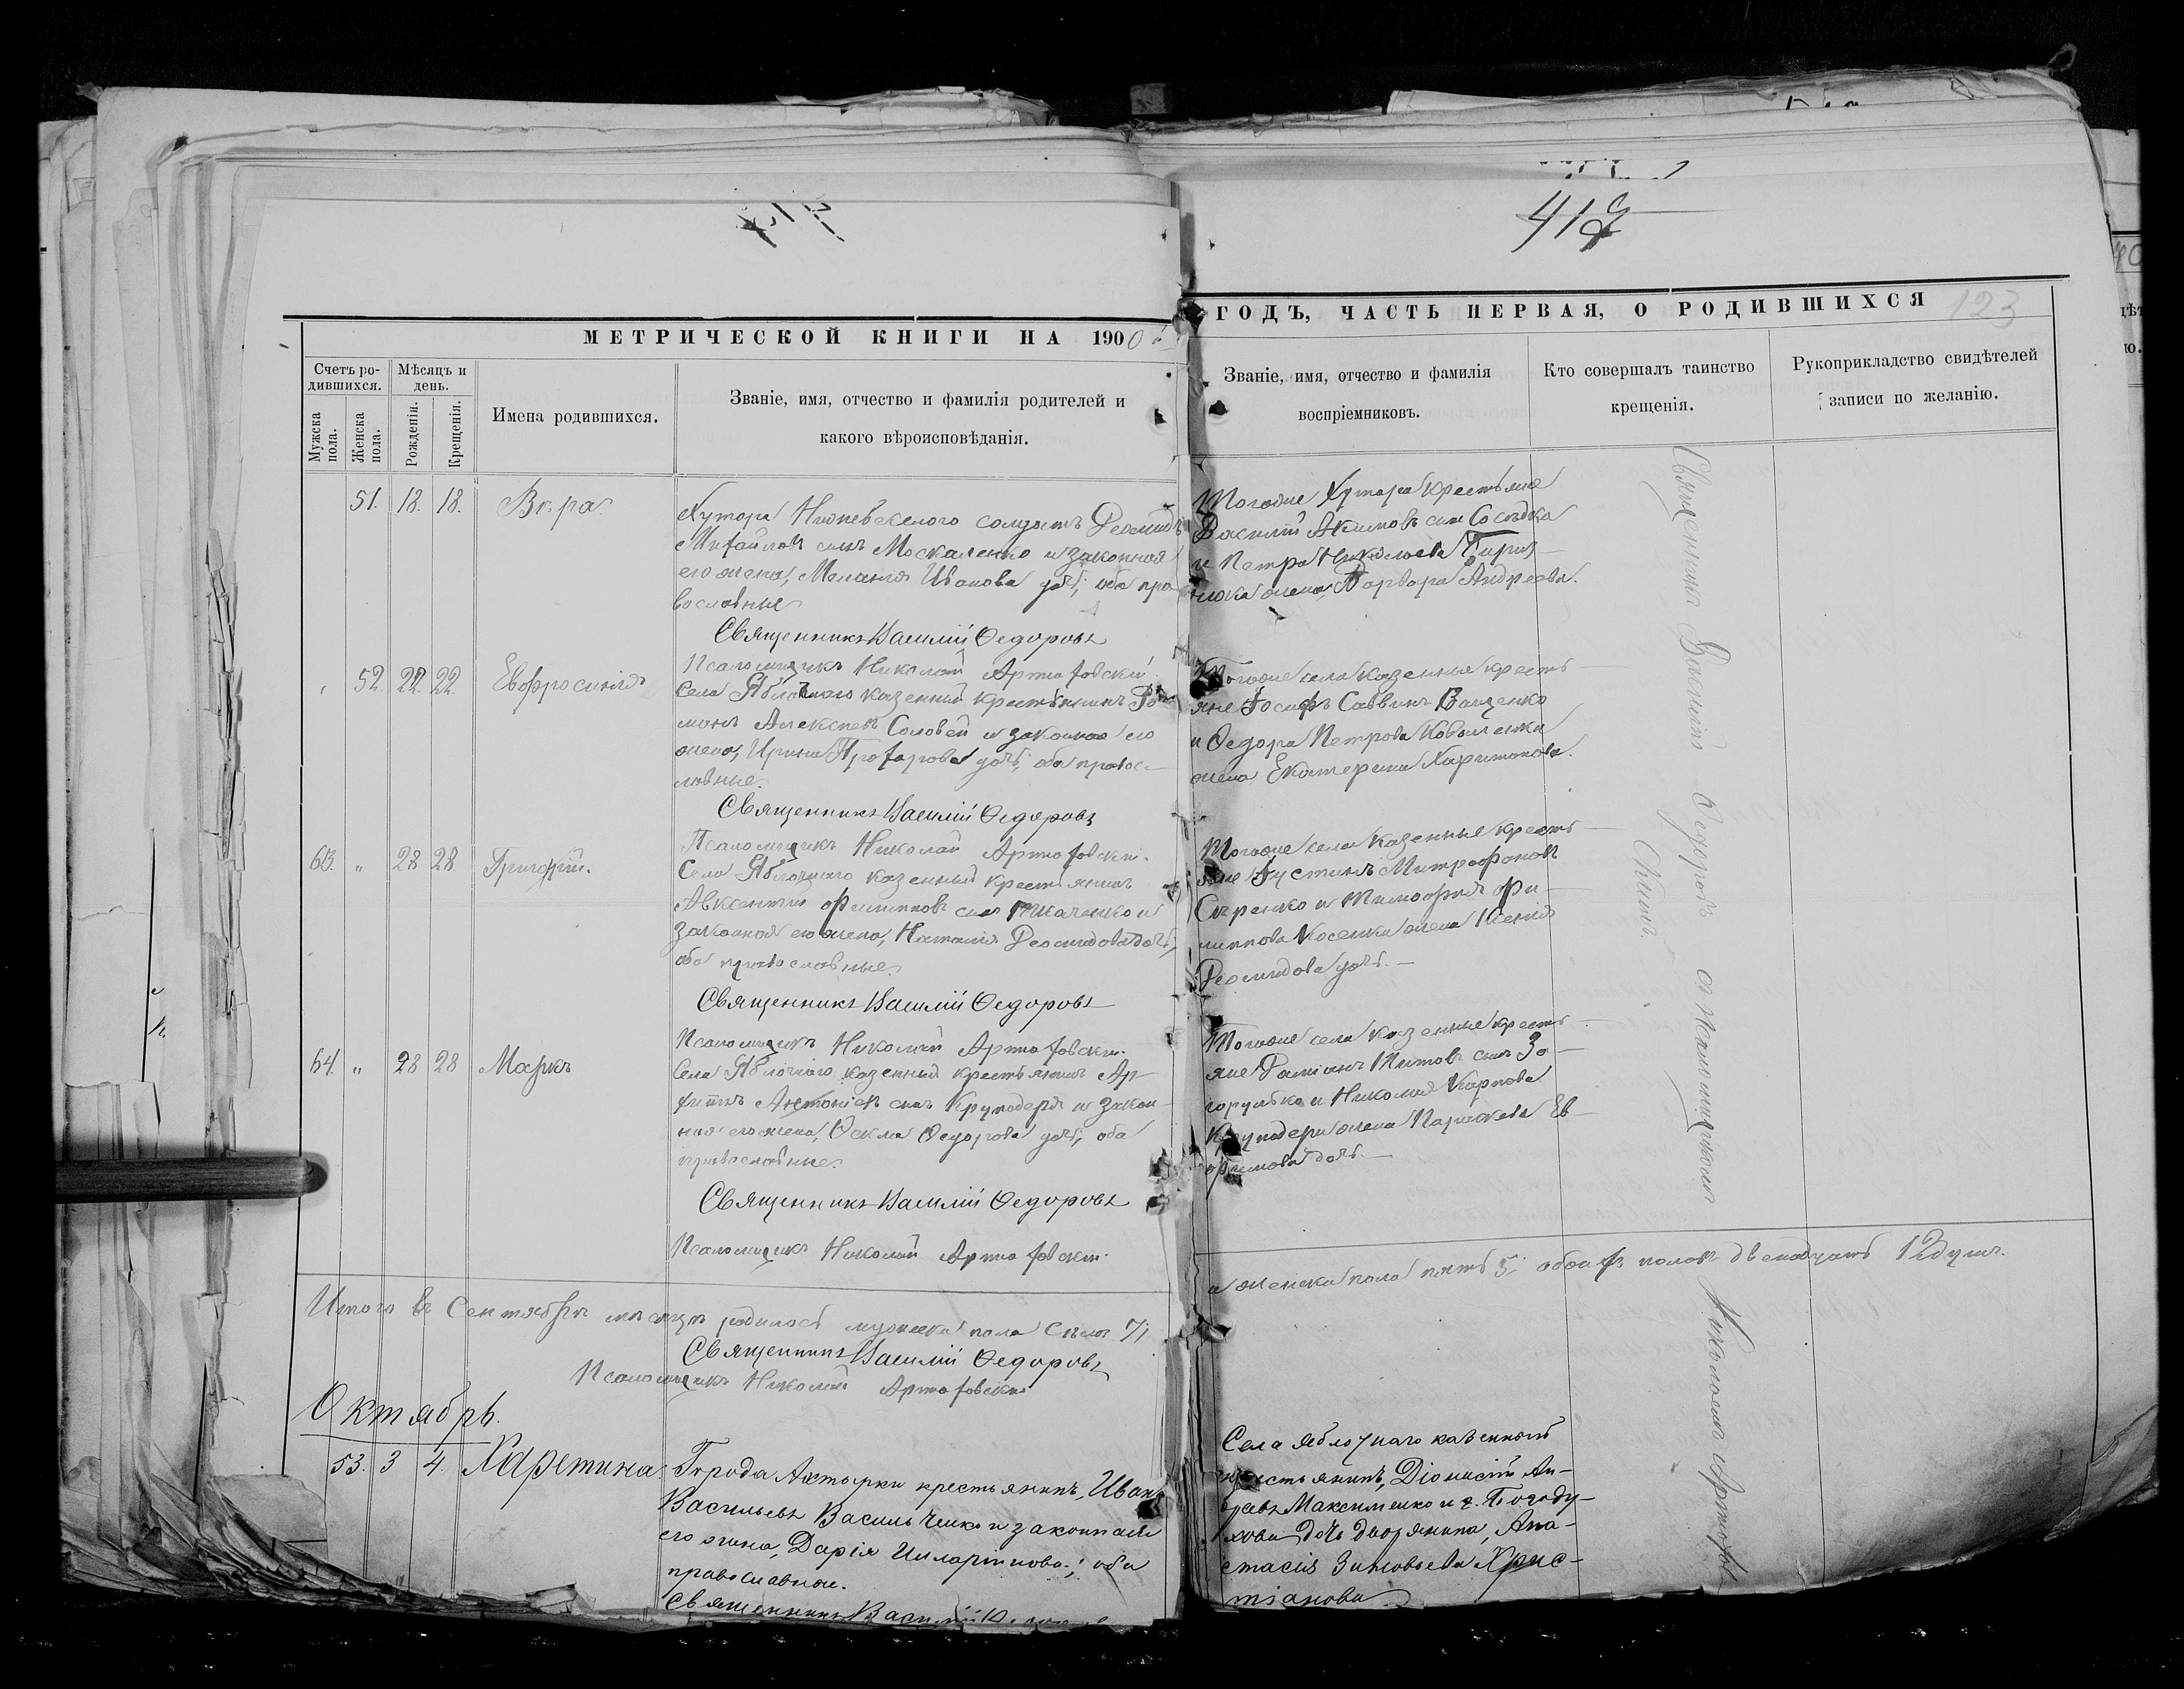 417
МЕТРИЧЕСКОЙ КНИГИ НА 1900
ГОДЪ, ЧАСТЬ ПЕРВАЯ, О РОДИВШИХСЯ
123
Счетъ ро-
дившихся.
Мѣсяцъ и
день.
Мужска
пола.
Женска
пола.
Рожденія.
Крещенія.
Имена родившихся.
Званіе, имя, отчество и фамилія родителей и
какого вѣроисповѣданія.
Званіе, имя, отчество и фамилія
воспріемниковъ.
Кто совершалъ таинство
крещенія.
Рукоприкладство свидѣтелей
записи по желанію.
51. 18. 18. Вѣра.
Хутора солдатъ Деомидъ
Михайловъ сынъ Москаленко и законная
его жена, Меланія Иванова дочь, оба пра-
вославные
Священникъ Василій Ѳедоровъ
Псаломщикъ Николай Артюховскій
Тогоже Хутора крестьяне
Василій Акимовъ сынъ Сосѣдка
и Петра Николаева
жена, Варвара Андреева.
52. 22. 22. Евфросинія
Села Яблочнаго казенный крестьянинъ Ро-
манъ Алексѣевъ Соловей и законная его
жена, Ирина Прохорова дочь, оба правос-
лавные.
Священникъ Василій Ѳедоровъ
Псаломщикъ Николай Артюховскій.
Тогоже села казенные кресть-
яне Іосифъ Саввинъ Ващенко
и Ѳедора Петрова Коваленка
жена Екатерина Харитонова.
63. " 28 28. Григорій.
Села Яблочнаго казенный крестьянинъ
Авксентій Филипповъ сынъ Ткаченко и
законная его жена, Наталія Деомидова дочь,
оба православные.
Священникъ Василій Ѳедоровъ
Псаломщикъ Николай Артюховскій.
Тогоже села казенные кресть-
яне Іустинъ Митрофановъ
Сѣренко и Тимофея Фи-
липпова Косенка жена Ксенія
Деомидова дочь.—
64. " 28 28 Маркъ
Села Яблочнаго казенный крестьянинъ Ар-
хиппъ Антоніевъ сынъ Круподеря и закон-
ная его жена, Ѳекла Ѳедорова дочь, оба
православные.
Священникъ Василій Ѳедоровъ
Псаломщикъ Николай Артюховскій.
Тогоже села казенные кресть-
яне Даміанъ Титовъ сынъ За-
горулько и Николая Карпова
Круподери жена Параскева Ев-
фимова дочь.—
Священникъ Василій Ѳедоровъ съ псаломщикомъ
Николаемъ
Итого въ Сентябрѣ мѣсяцѣ родилось мужеска пола семь 7;
а женска пола пять 5; обоихъ половъ двенадцать 12 душъ.
Священникъ Василій Ѳедоровъ
Псаломщикъ Николай Артюховскій
Октябрь.
53. 3 4. Харитина.
Города Ахтырки крестьянинъ, Иванъ
Васильевъ Васильченко и законная
его жена, Дарія Илларіонова; оба
православные.
Священникъ Василій
Села Яблочнаго казенный
крестьянинъ, Діонисій Ан-
Максименко и г. Богоду-
хова дочь дворянина, Ана-
стасія Зиновьева Хрис-
тіанова